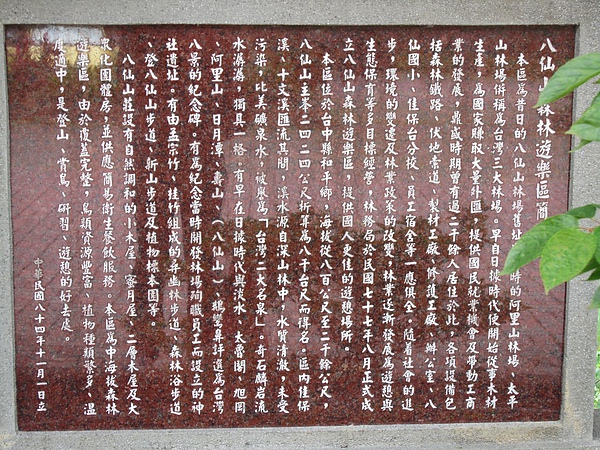 八仙山森林遊樂區簡
本區為昔日的八仙山林場舊址，時的阿里山林場、太平
山林場併稱為台灣三大林場。早自日據時代便開始從事木材
生產，為國家賺取大量外匯，提供國民就業機會及帶動工商
業的發展，鼎盛時期曾有過二千餘人居住於此，各項設備包
括森林鐵路、伏地索道、製材工廠、修護工廠、辦公室、八
仙國小、佳保台分校、員工宿舍等一應俱全。隨着社會的進
步，環境的變遷及林業政策的改變，林業逐漸發展為遊憩與
生態保育等多目標經營。林務局於民國七十七年八月正式成
立八仙山森林遊樂區，提供國人更佳的遊憩場所。
本區位於台中縣和平鄉，海拔從八百公尺至二千餘公尺，
八仙山主峯為二四二四公尺折算為八千台尺而得名。區內佳保
溪、十文溪匯流其間，溪水源自深山林中，水質清澈，未受
污染，比美礦泉水，被譽為「台灣二大名泉」。奇石麟岩流
水潺潺，獨具一格，有早在日據時代與淡水、太魯閣、旭岡
、阿里山、日月潭、壽山、（八仙山）、鵝鑾鼻評選為台灣
八景的紀念碑。有為紀念當時開發林場殉職員工而設立的神
社遺址。有由孟宗竹、桂竹組成的弄幽林步道、森林浴步道
、登八仙山步道、新山步道及植物標本園等。
八仙山莊設有自然調和的小木屋、蜜月屋、二層木屋及大
眾化團體房，並供應簡易衛生餐飲服務。本區為中海拔森林
遊樂區，由於覆蓋完整，鳥類資源豐富、植物種類繁多、溫
度適中，是登山、賞鳥、研習、遊憩的好去處。
中華民國八十四年十一月一日立